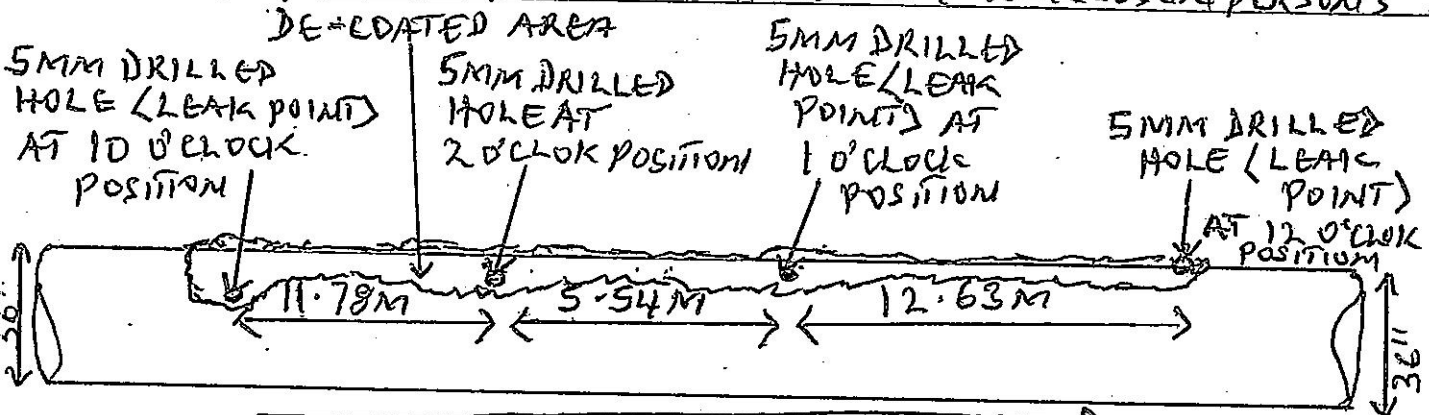 PERSONS
DE-COATED AREA
5MM DRILLED
HOLE (LEAK POINT)
AT 10 O'CLOCK
POSITION
5MM DRILLED
HOLE AT
2 O'CLOK POSITION
5MM DRILLED
HOLE (LEAK
POINT) AT
1 O'CLOCK
POSITION
5MM DRILLED
HOLE (LEAK
POINT)
AT 12 O'CLOK
POSITION
11.78M
5.54M
12.63M
36"